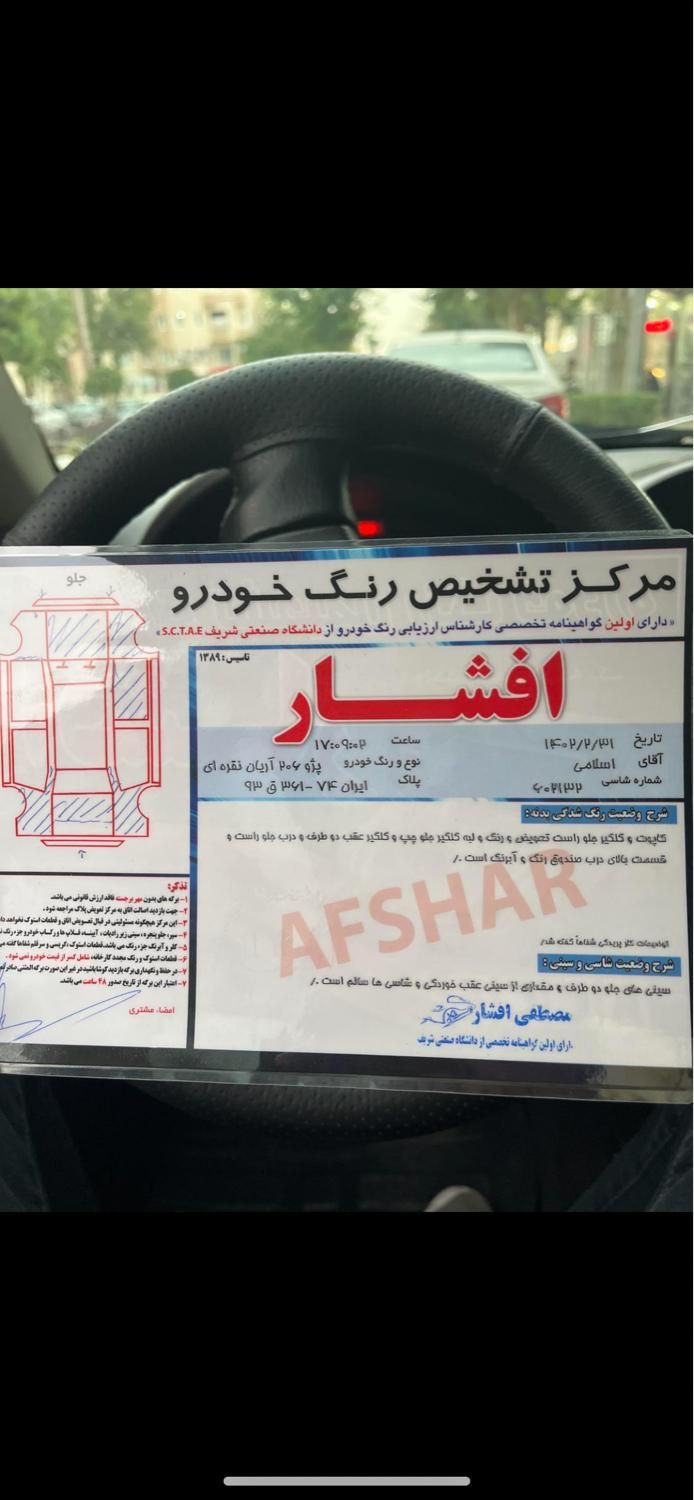 مرکز تشخیص رنگ خودرو
«دارای اولین گواهینامه تخصصی کارشناس ارزیابی رنگ خودرو از دانشگاه صنعتی شریف S.C.T.A.E»
جلو
تاسیس: ۱۳۸۹
افشار
تاریخ ۱۴۰۲/۲/۳۱ ساعت ۱۷:۰۹:۰۲
آقای اسلامی نوع و رنگ خودرو پژو ۲۰۶ آریان نقره ای
شماره شاسی ۶۰۲۱۳۲ پلاک ایران ۷۴ -۳۶۱ ق ۹۳
شرح وضعیت رنگ شدگی بدنه:
کاپوت و گلگیر جلو راست تعویض و رنگ و لبه گلگیر جلو چپ و گلگیر عقب دو طرف و درب جلو راست و
قسمت بالای درب صندوق رنگ و آبرنگ است ./
AFSHAR
توضیحات کلر پریدگی شفاها گفته شد/
شرح وضعیت شاسی و سینی:
سینی های جلو دو طرف و مقداری از سینی عقب خوردگی و شاسی ها سالم است ./
مصطفی افشار
دارای اولین گواهینامه تخصصی از دانشگاه صنعتی شریف
تذکر:
۱- برگه های بدون مهر برجسته فاقد ارزش قانونی می باشد.
۲- جهت بازدید اصالت اتاق به مرکز تعویض پلاک مراجعه شود.
۳- این مرکز هیچگونه مسئولیتی در قبال تعویض اتاق و قطعات استوک نخواهد
۴- سپر، جلو پنجره، سینی زیر رادیات، آیینه، قلاب ها و رکاب خودرو جزء رنگ
۵- کلر و آبرنگ جزء رنگ می باشد. قطعات استوک، گریسی و سرقلم شفاها گفته
۶- قطعات استوک و رنگ مجدد کارخانه، شامل کسر از قیمت خودرو نمی شود.
۷- در حفظ و نگهداری برگه بازدید کوشا باشید در غیر این صورت برگه المثنی صادر
۷- اعتبار این برگه از تاریخ صدور ۴۸ ساعت می باشد.
امضاء مشتری